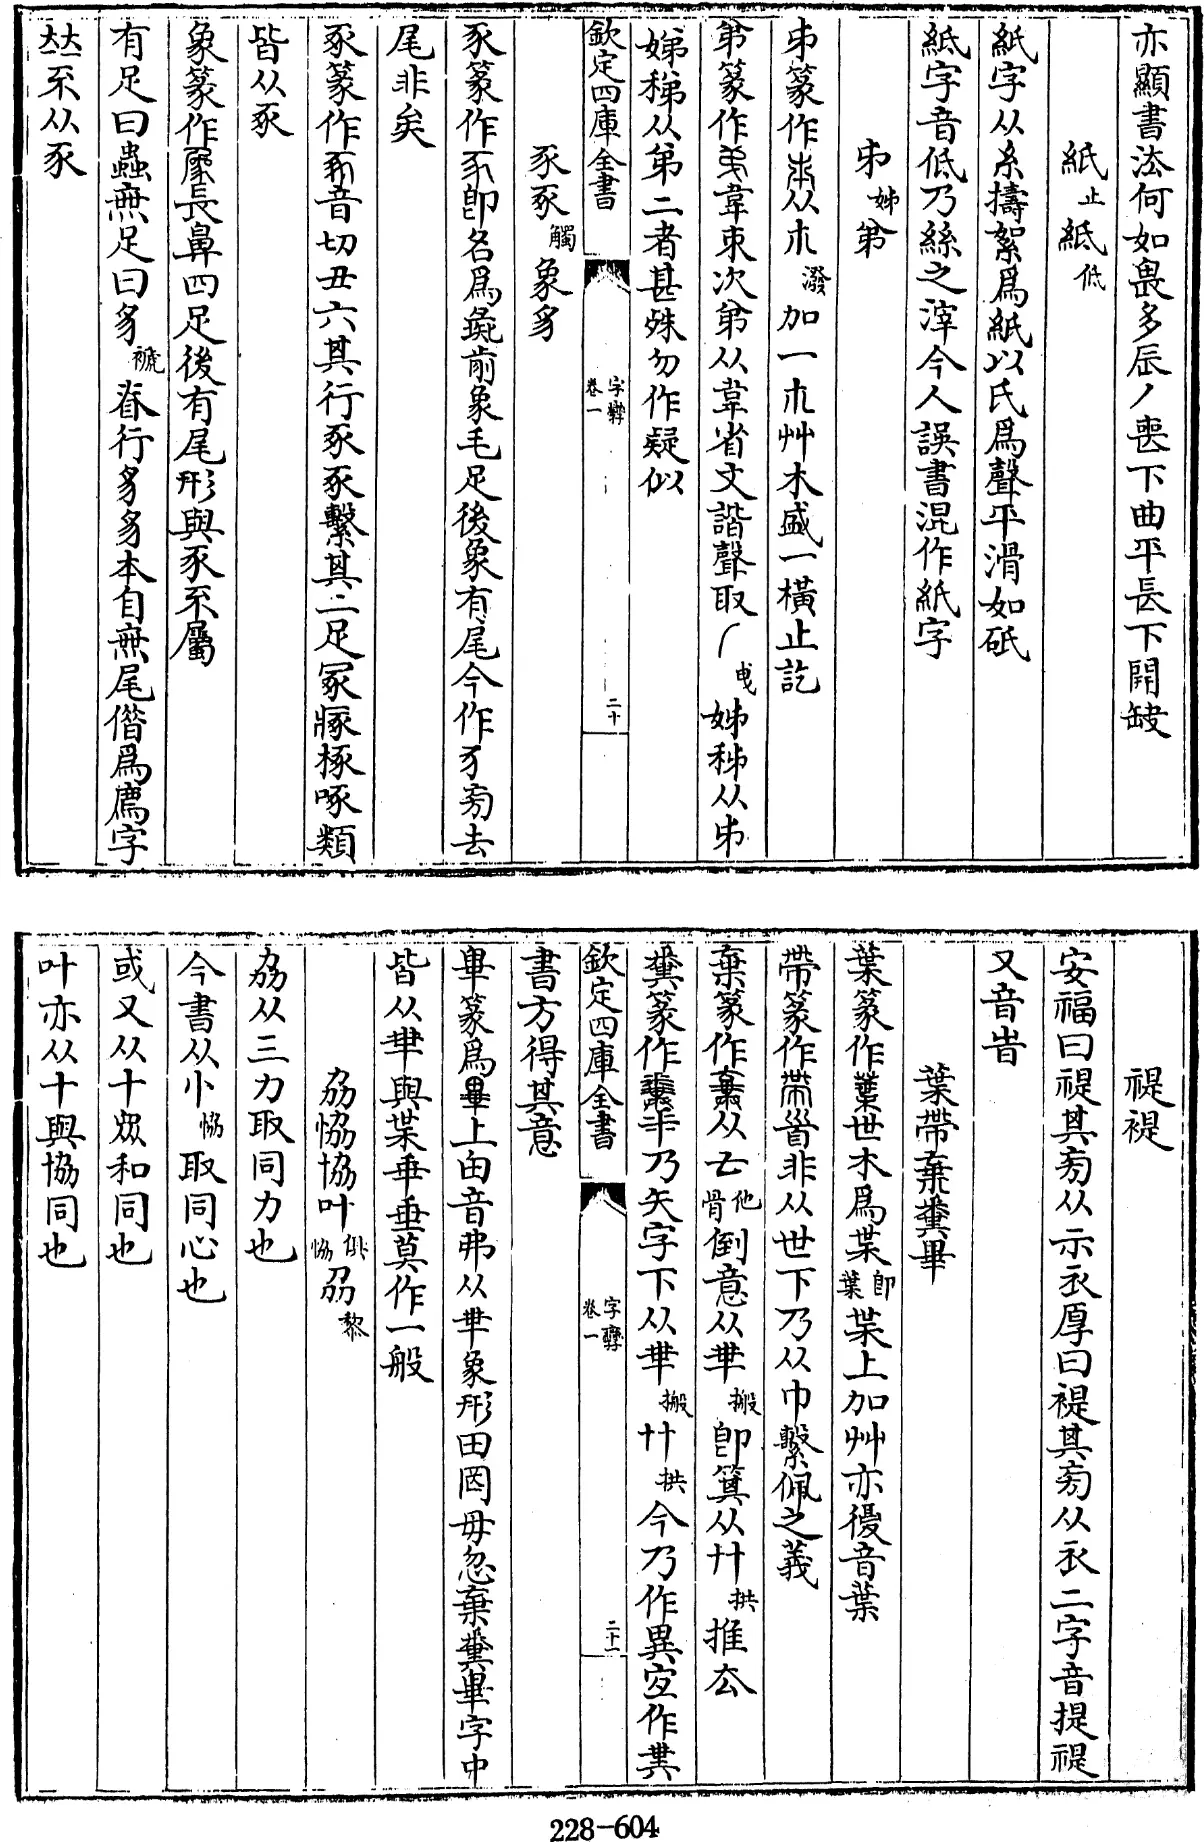 亦顯書法何如畏多辰丿喪下曲平長下開缺
紙止紙低
紙字从糸擣絮爲紙以氏爲聲平滑如砥
紙字音低乃絲之滓今人誤書混作紙字
𠂔姊弟
𠂔篆作从朩潑加一朩艸木盛一橫止訖
弟篆作韋束次弟从韋省文諧聲取丿曳姊秭从𠂔
娣稊从弟二者甚殊勿作疑似
欽定四庫全書
字孿
卷一
二十
豕豖觸象豸
豕篆作即名爲彘前象毛足後象有尾今作犭旁去
尾非矣
豖篆作音切丑六其行豖豖繫其二足冢瘃椓啄類
皆从豖
象篆作長鼻四足後有尾形與豕不屬
有足曰蟲無足曰豸褫脊行豸豸本自無尾偕爲廌字
𡘋不从豕
禔褆
安福曰禔其旁从示衣厚曰褆其旁从衣二字音提禔
又音旹
葉帶棄糞畢
葉篆作世木爲枼即葉枼上加艸亦復音葉
帶篆作𦥔非从世下乃从巾繫佩之義
棄篆作从𠫓他骨倒意从𠦒搬即箕从廾拱推厺
糞篆作釆乃矢字下从𠦒搬廾拱今乃作異宜作
欽定四庫全書
字孿
卷一
二十一
書方得其意
畢篆爲上甶音弗从𠦒象形田罔毋忽棄糞畢字中
皆从𠦒與枼垂莫作一般
劦恊協叶俱恊刕黎
劦从三力取同力也
今書从忄恊取同心也
或又从十衆和同也
叶亦从十與協同也
228-604